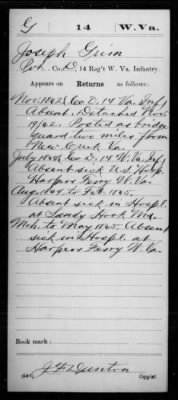 G 14 W.Va.
Joseph Grim
Co. D, 14 Reg't W. Va. Infantry.
Appears on Returns as follows:
Nov. 1862, Co. D. 14 Va. Inf.,
Absent, Detached Nov.
19/62. Posted as bridge
guard two miles from
New Creek Va.
July 1864, Co. D. 14 W. Va. Inf.,
Absent sick U.S. Hosp.
Harpers Ferry W. Va.
Aug. 1864 to Feb. 1865.
Absent sick in Hospl.
at Sandy Hook Md.
Mch. to May 1865. Absent
sick in Hospl. at
Harpers Ferry W. Va.
Book mark:
Copyist.